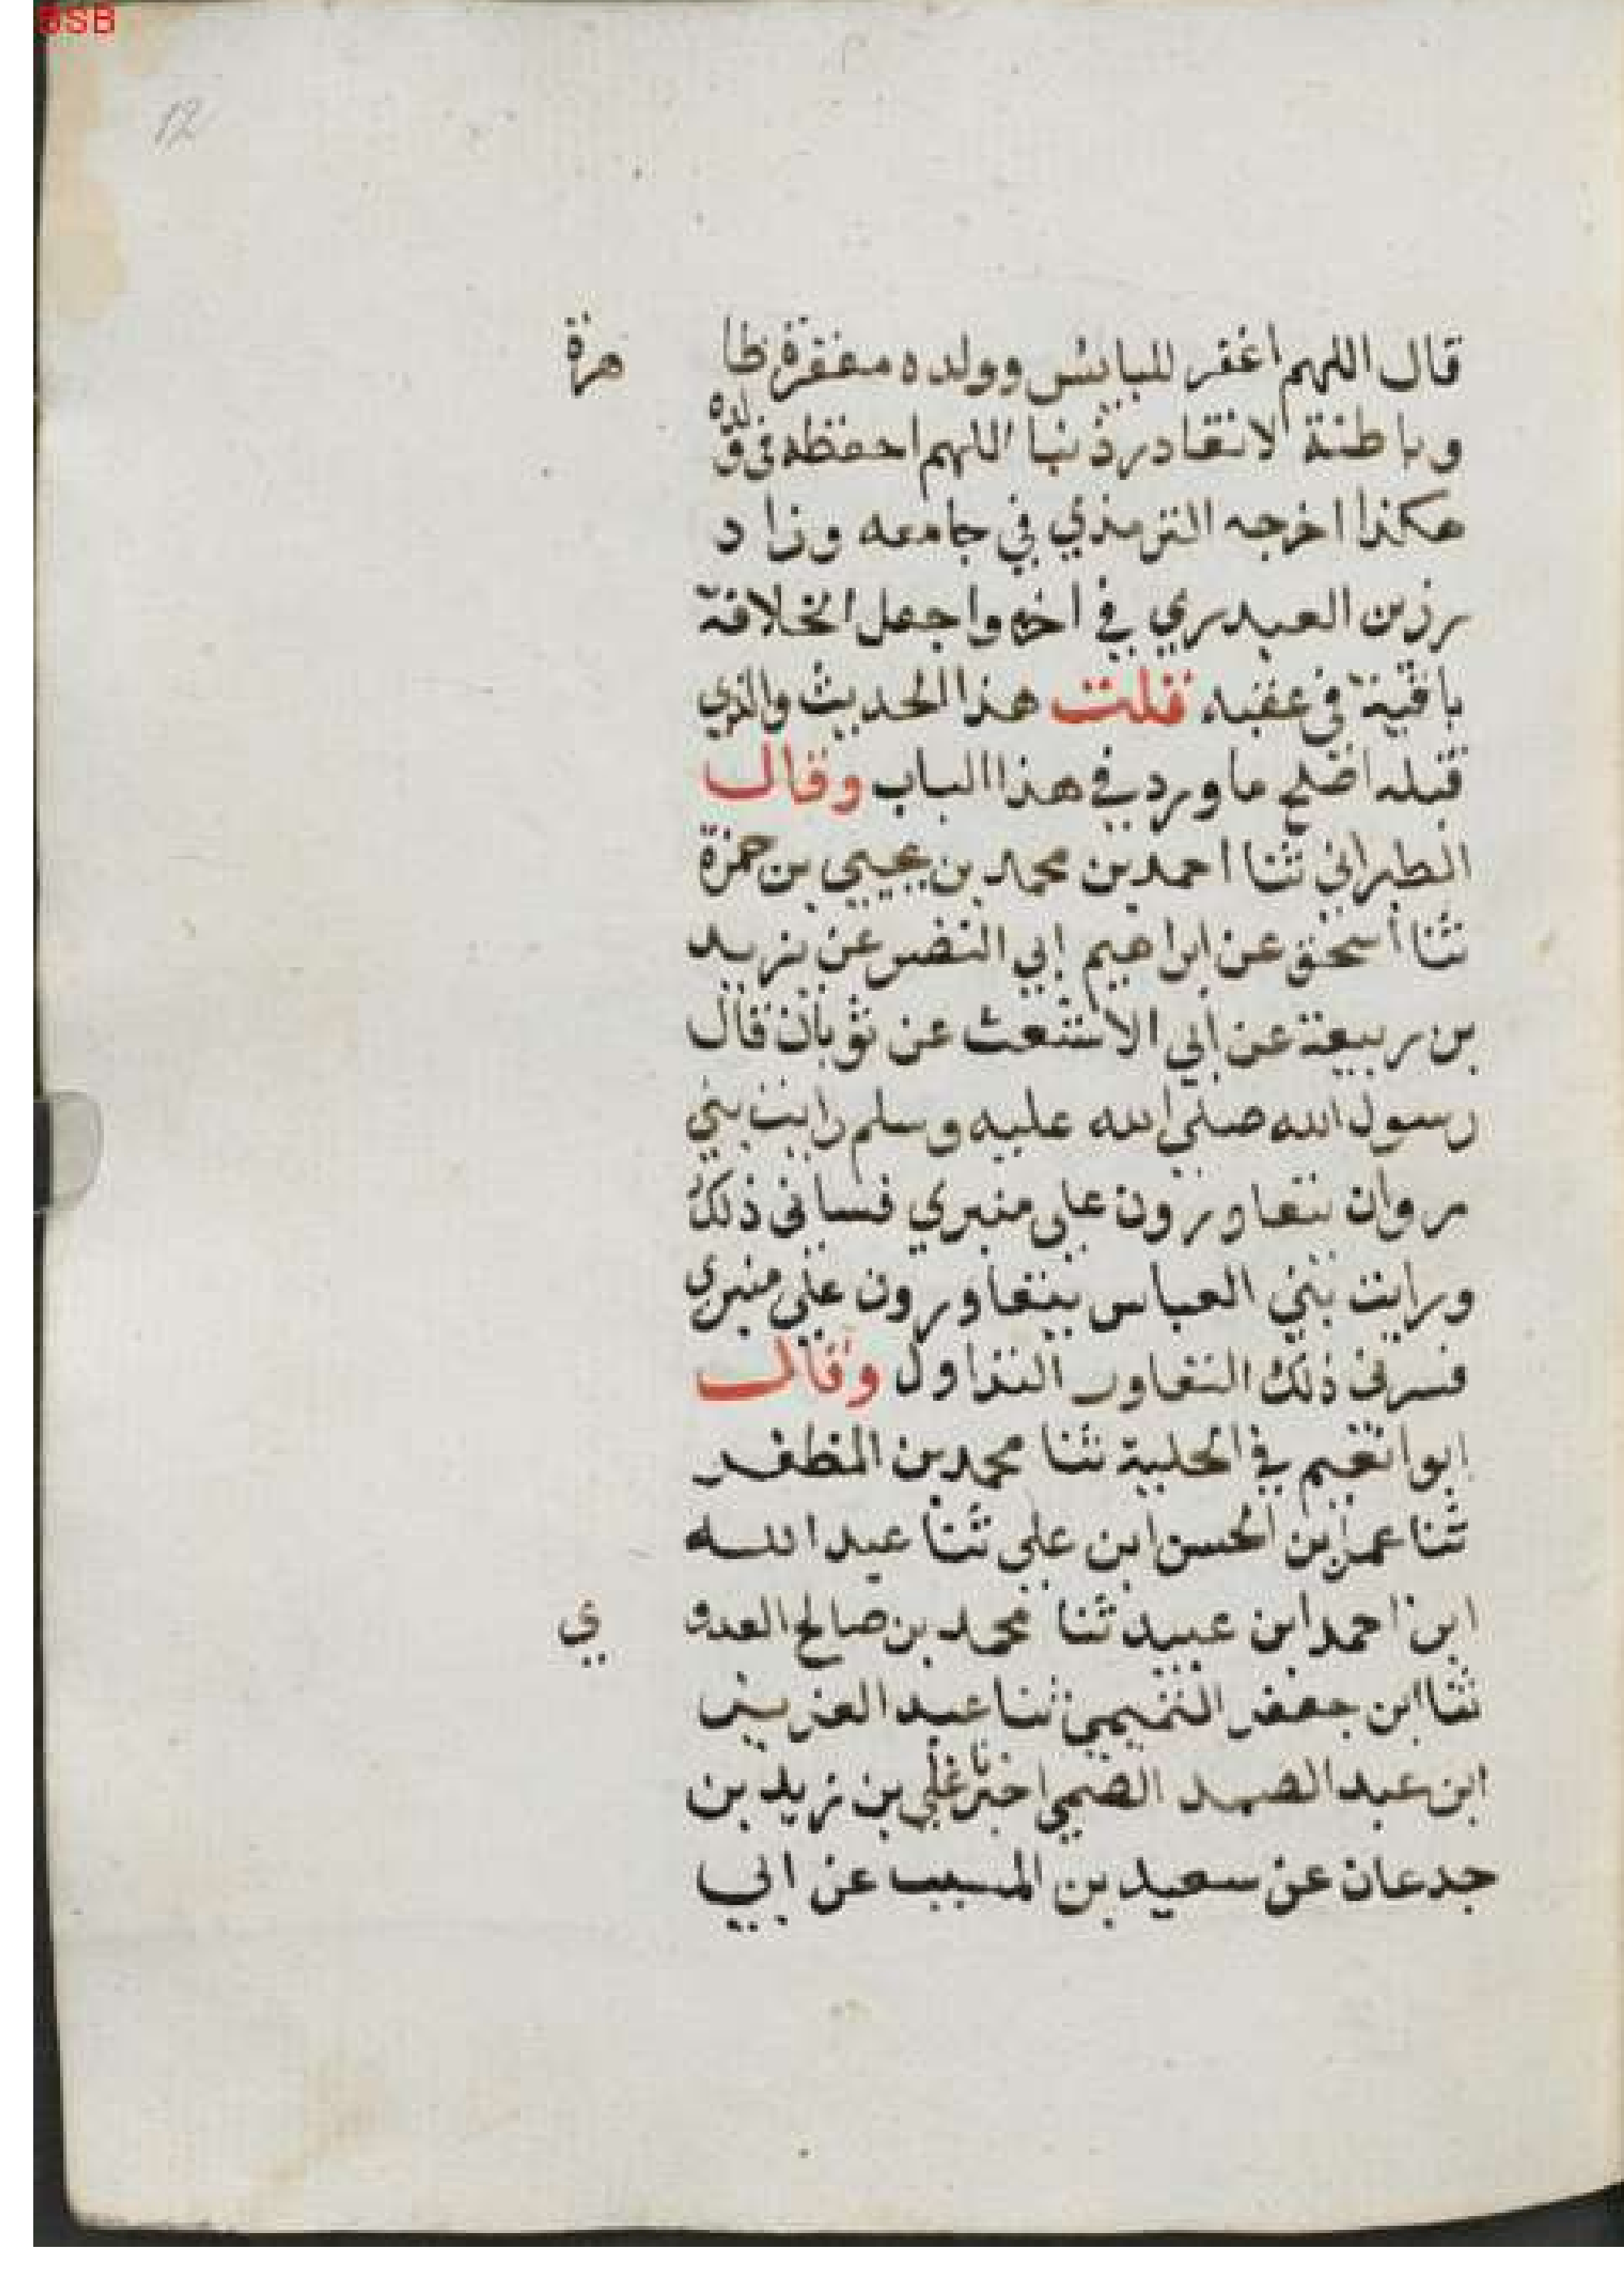 BSB
12
قال اللهم اغفر للبايس وولده مغفرة ظا هرة
وباطنة لا تغادر ذنبا اللهم احفظه في ولده
هكذا اخرجه الترمذي في جامعه وزاد
رزين العبدري في اخره واجعل الخلافة
باقية في عقبه قلت هذا الحديث والذي
قبله اصلح ما ورد في هذا الباب وقال
الطبراني ثنا احمد بن محمد بن يحيي بن حمزة
ثنا اسحق عن ابراهيم ابي النضر عن يزيد
بن ربيعة عن أبي الاشعث عن ثوبان قال
رسول الله صلي الله عليه وسلم رايت بني
مروان يتعاورون علي منبري فساني ذلك
ورايت بني العباس يتعاورون علي منبري
فسرني ذلك التعاور التداول وقال
ابوا نعيم في الحلية ثنا محمد بن المظفر
ثنا عمر ابن الحسن ابن علي ثنا عبد الله
ابن احمد ابن عبيد ثنا محمد بن صالح العدو ي
ثنا ابن جعفر التميمي ثنا عبد العزيز
ابن عبد الصمد العمي اخبرنا علي بن زيد بن
جدعان عن سعيد بن المسيب عن ابي